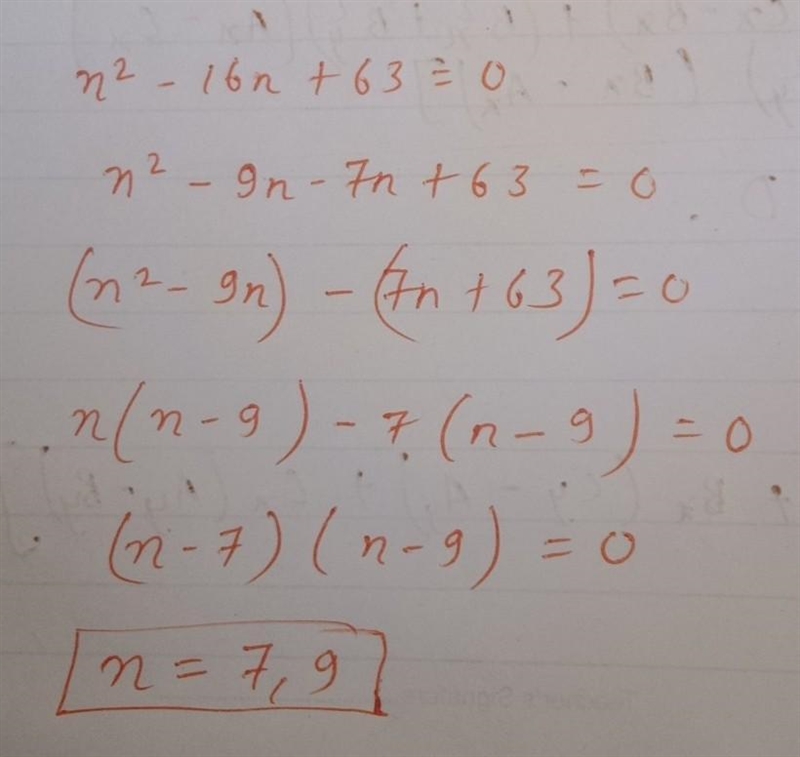 n² - 16n + 63 = 0
n² - 9n - 7n + 63 = 0
(n² - 9n) - (7n + 63) = 0
n(n - 9) - 7(n - 9) = 0
(n - 7)(n - 9) = 0
n = 7, 9